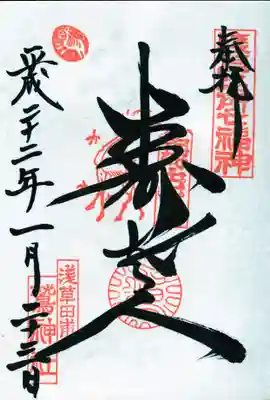 奉拝
七福神
寿老人
淺草田甫
鷲神社
平成二十二年一月二十三日